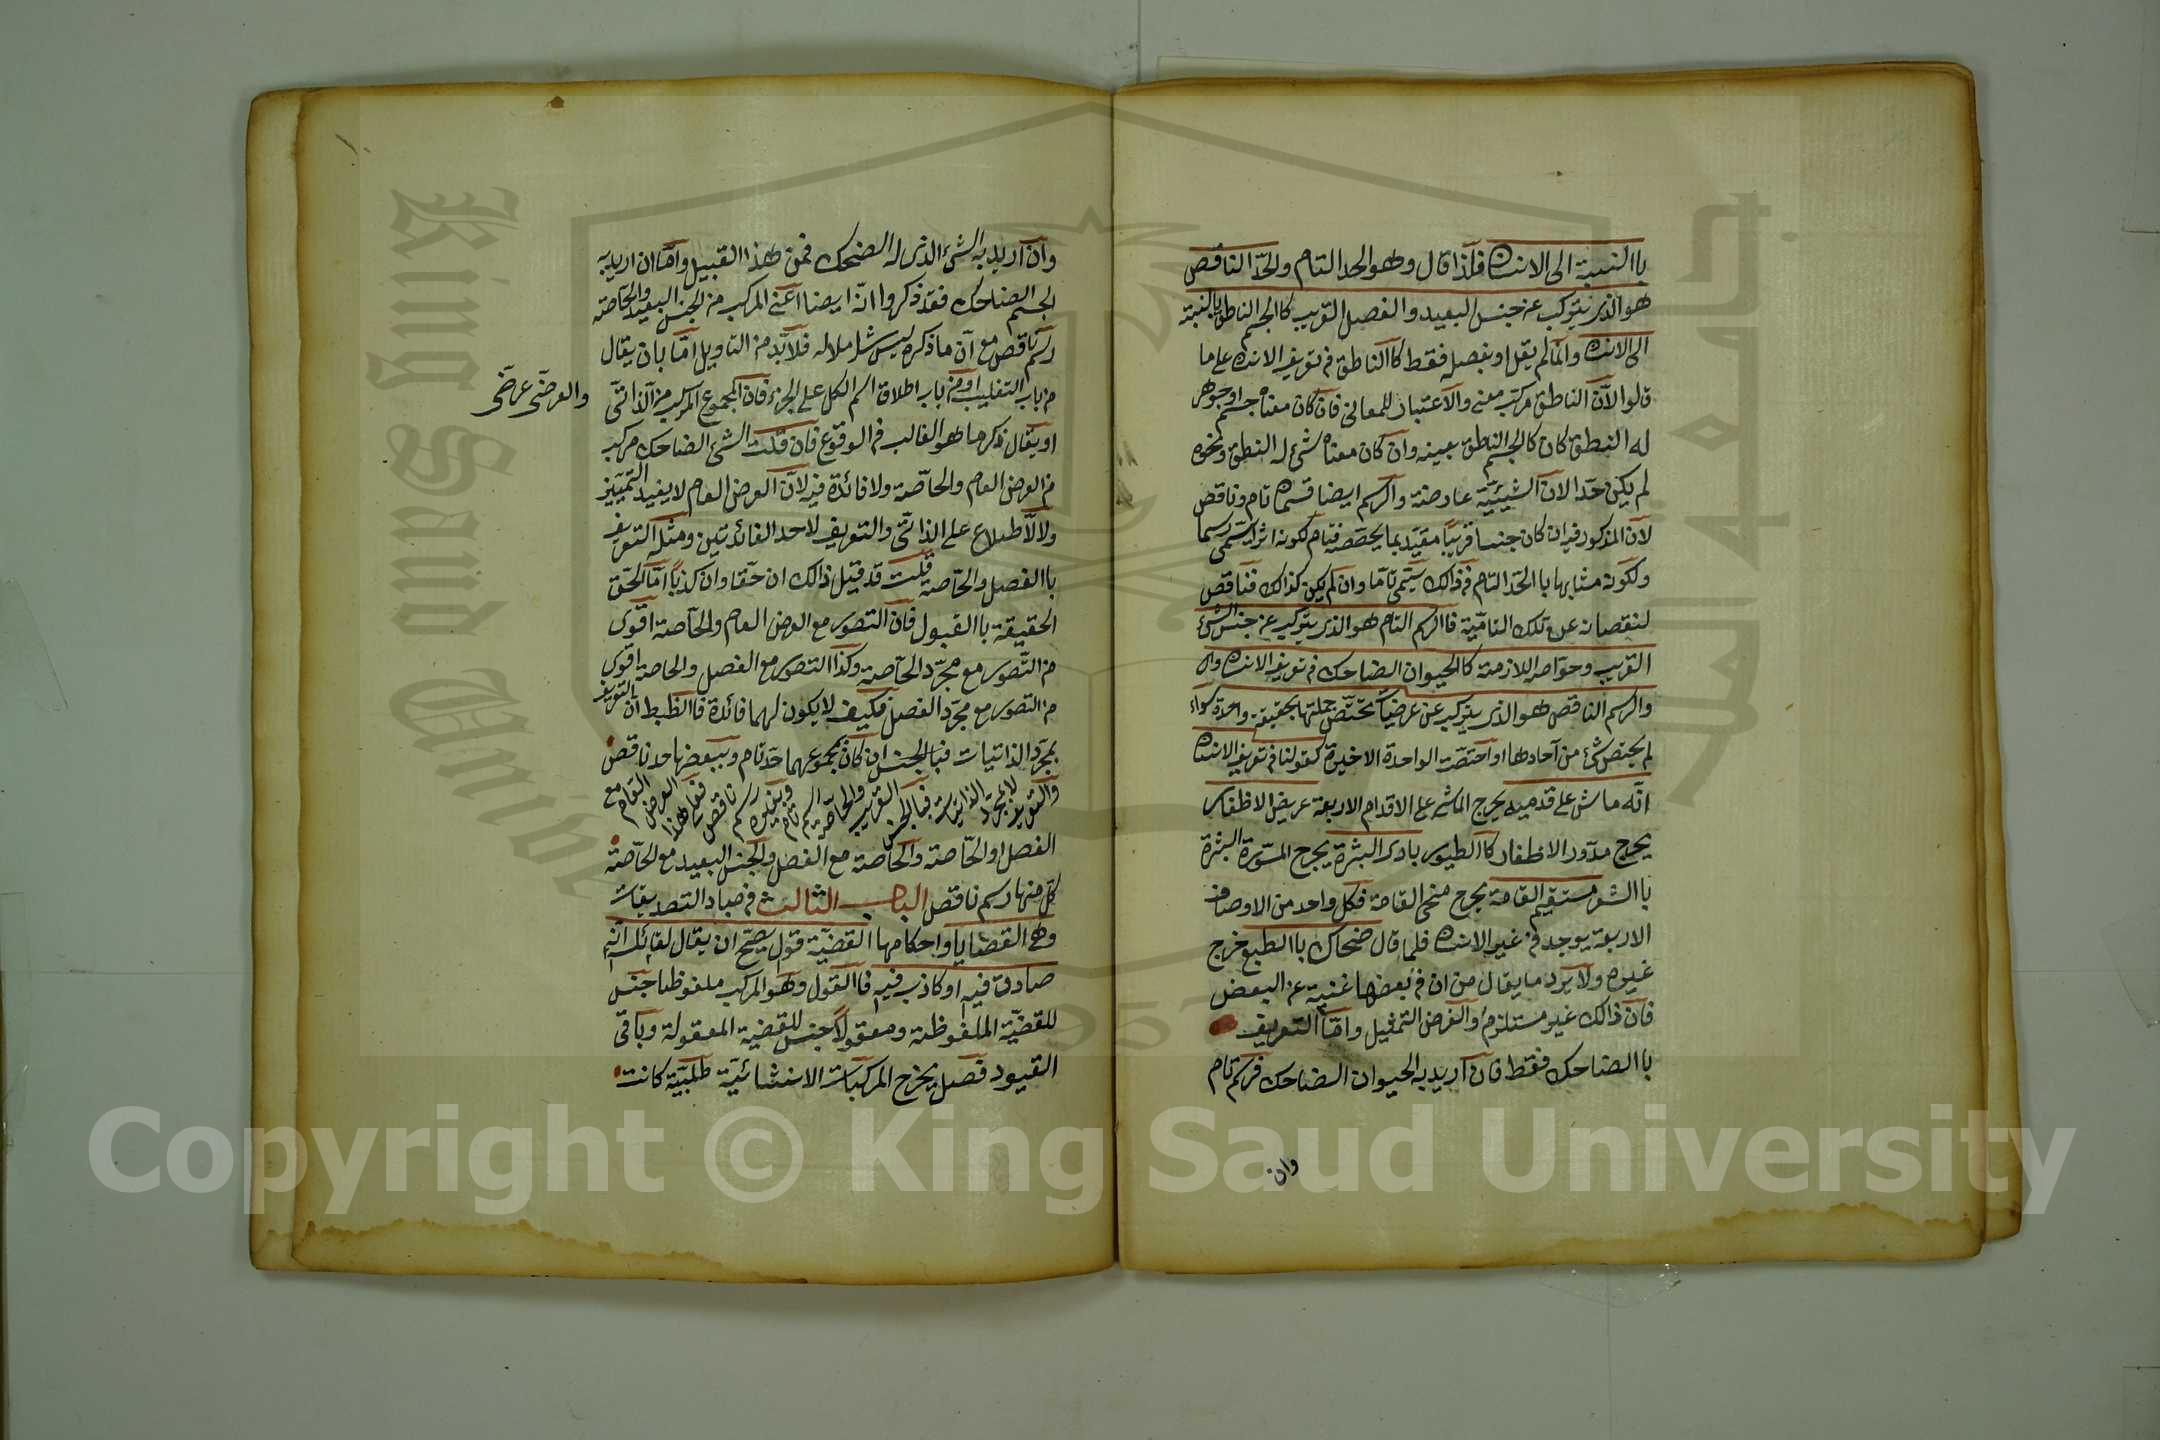 باالنسبة الى الانسان فلذا قال وهو الحد التام والحد الناقص
هو الذى يتركب عن جنس البعيد والفصل القريب كا الجسم الناطق باالنسبة
الى الانسان وانما لم يقل او بفصله فقط كا الناطق فى تعريف الانسان على ما
قالوا لان الناطق مركب معنى والاعتبار للمعانى فان كان معناه جسم او جوهر
له النطق كان كا الجسم الناطق بعينه وان كان معناه شئ له النطق ونحوه
لم يكن حدا لان الشيئية عارضة والرسم ايضا قسمان تام وناقص
لان المذكور فيه ان كان جنسا قريبا مقيدا بما يخصصه فتام لكونه اثرا يسمى رسما
ولكونه مشابها باالحد التام فى ذالك يسمى تاما وان لم يكن كذالك فناقص
لنقصانه عن تلك التامية فاالرسم التام هو الذى يتركب عن جنس الشئ
القريب وخواصه اللازمة كا الحيوان الضاحك فى تعريف الانسان
والرسم الناقص هو الذى يتركب عن عرضيات تختص جملتها بحقيقة واحدة سواء
لم يختص شئ من آحادها او اختصت الواحدة الاخيرة كقولنا فى تعريف الانسان
انه ماش على قدميه يخرج الماشى على الاقدام الاربعة عريض الاظفار
يخرج مدور الاظفار كا الطيور بادى البشرة يخرج المستورة البشرة
باالشعر مستقيم القامة يخرج منحى القامة فكل واحد من الاوصاف
الاربعة يوجد فى غير الانسان فلما قال ضحاك باالطبع خرج
غيره ولا يرد ما يقال من ان فى بعضها غنية عن البعض
فان ذالك غير مستلزم والغرض التمثيل واما التعريف
باالضاحك فقط فان اريد به الحيوان الضاحك فرسم تام
وان
وان اريد به الشئ الذى له الضحك فمن هذا القبيل واما ان اريد به
الجسم الضاحك فقد ذكروا انه ايضا اعنى المركب من الجنس البعيد والخاصة
رسم ناقص مع ان ما ذكره ليس شاملا له فلا بد من التاويل اما بان يقال
من باب التغليب او من باب اطلاق اسم الكل على الجزء فان المجموع المركب من الذاتى
والعرضى عرضى
او يقال ذكر ما هو الغالب فى الوقوع فان قلت الشئ الضاحك مركب
من العرض العام والخاصة ولا فائدة فيه لان العرض العام لا يفيد التمييز
ولا الاطلاع على الذاتى والتعريف لاحد الفائدتين ومثله التعريف
باالفصل والخاصة قلت قد قيل ذالك ان حقا وان كذبا اما الحق
الحقيقة باالقبول فان التصور مع العرض العام والخاصة اقوى
من التصور مع مجرد الخاصة وكذا التصور مع الفصل والخاصة اقوى
من التصور مع مجرد الفصل فكيف لا يكون لهما فائدة فاالظبط ان التعريف
بمجرد الذاتيات فباالجنس ان كان بمجموعهما حد تام وببعضها حد ناقص
والتعريف لا بمجرد الذاتيات فباالجنس القريب والخاصة رسم تام وبغيره رسم ناقص فعلى هذا العرض العام مع
الفصل او الخاصة والخاصة مع الفصل والجنس البعيد مع الخاصة
كل منها رسم ناقص الباب الثالث فى مباد التصديقات
وهى القضايا واحكامها القضية قول يصح ان يقال لقائله انه
صادق فيه او كاذب فيه فاالقول وهو المركب ملفوظا جنس
للقضية الملفوظة ومعقولا جنس للقضية المعقولة وباقى
القيود فصل يخرج المركبات الانشائية طلبية كانت
Copyright © King Saud University
King Saud University
1957